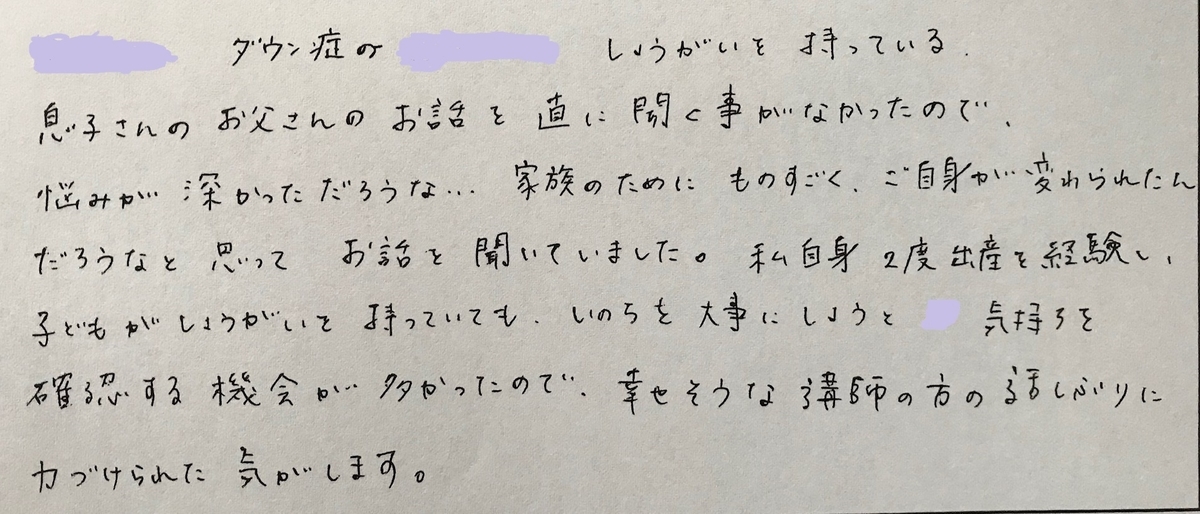 ダウン症の しょうがいを 持っている、
息子さんの お父さんの お話を 直に 聞く事がなかったので、
悩みが 深かっただろうな… 家族のために ものすごく、ご自身が変わられたん
だろうなと 思って お話を 聞いていました。私自身 2度出産を経験し、
子どもがしょうがいを 持っていても、いのちを大事にしようと 気持ちを
確認する機会が 多かったので、幸せそうな講師の方の話しぶりに
力づけられた 気がします。